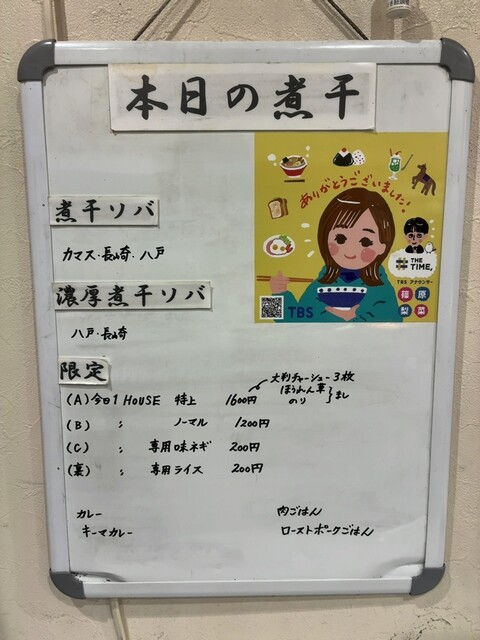 本日の煮干
煮干ソバ
カマス・長崎・八戸
濃厚煮干ソバ
八戸・長崎
限定
(A)今日1 HOUSE 特上 1600円
大判チャーシュー3枚
ほうれん草
のり
まし
(B) 〃 ノーマル 1200円
(C) 〃 専用味ネギ 200円
(裏) 〃 専用ライス 200円
カレー 肉ごはん
キーマカレー ローストポークごはん
ありがとうございました!
# THE TIME,
TBS アナウンサー
篠原
梨菜
TBS